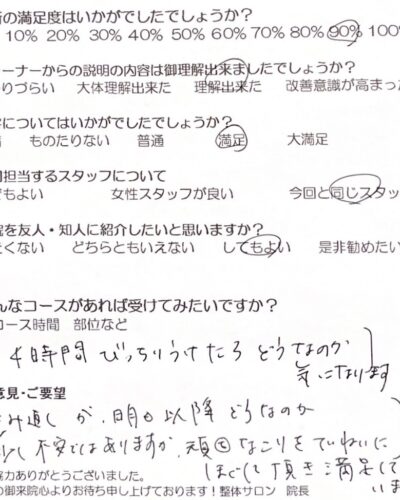 の満足度はいかがでしたでしょうか?
10% 20% 30% 40% 50% 60% 70% 80% 90% 100
ーナーからの説明の内容は御理解出来ましたでしょうか?
りづらい 大体理解出来た 理解出来た 改善意識が高まった
についてはいかがでしたでしょうか?
ものたりない 普通 満足 大満足
担当するスタッフについて
でもよい 女性スタッフが良い 今回と同じスタッ
を友人・知人に紹介したいと思いますか?
たくない どちらともいえない してもよい 是非勧めたい
んなコースがあれば受けてみたいですか?
コース時間 部位など
4時間 びっちりうけたら どうなのか
気になります
意見・ご要望
み返し が、明日以降どうなのか
少し不安ではありますが、頑固なこりをていねいに
ほぐして頂き満足して
いま
協力ありがとうございました。
の御来院心よりお待ち申し上げております!整体サロン 院長